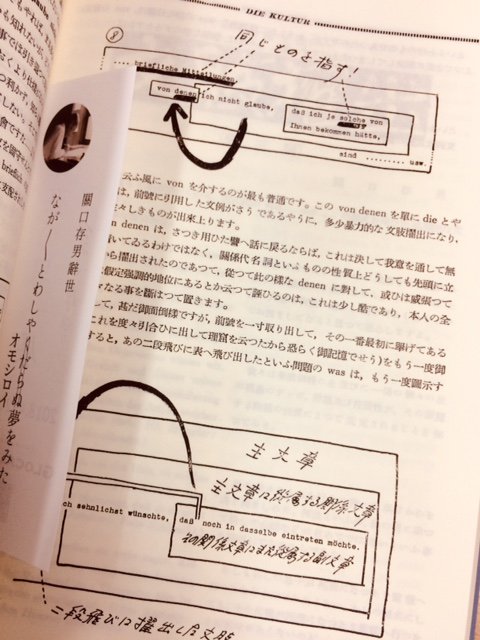 DIE KULTUR
⑧
同じものを指す!
.... briefliche Mitteilungen
von denen ich nicht glaube,
daß ich je solche von
Ihnen bekommen hätte,
sind ......... usw.
云ふ風に von を介するのが最も普通です。この von denen を単に die とや
は、前號に引用した文例がさうであるやうに、多少暴力的な文肢擢出になり、
々しきものが出來上ります。
n denen は、さつき用ひた譬へ話に戻るならば、これは決して我意を通して無
いてゐるわけではなく、關係代名詞といふものの性質上どうしても先頭に立
ら擢出されたのであつて、從つて此の樣な denen に對して、或ひは威張つて
假定強調的地位にあるとか云つて誣ひるのは、これは少し酷であり、本人の全
なる事を斷はつて置きます。
て、甚だ御面倒樣ですが、前號を一寸取り出して、その一番最初に擧げてある
これを度々引合ひに出して理窟を云つたから恐らく御記憶でせう)をもう一度御
すると、あの二段飛びに表へ飛び出したといふ問題の was は、もう一度圖示す
關口存男辭世
なが〱とわしやくだらぬ夢をみた
オモシロイ
主文章
主文章に從屬する關係文章
ch sehnlichst wünschte,
daß noch in dasselbe eintreten möchte.
その關係文章にまた從屬する副文章
二段飛びに擢出した文肢